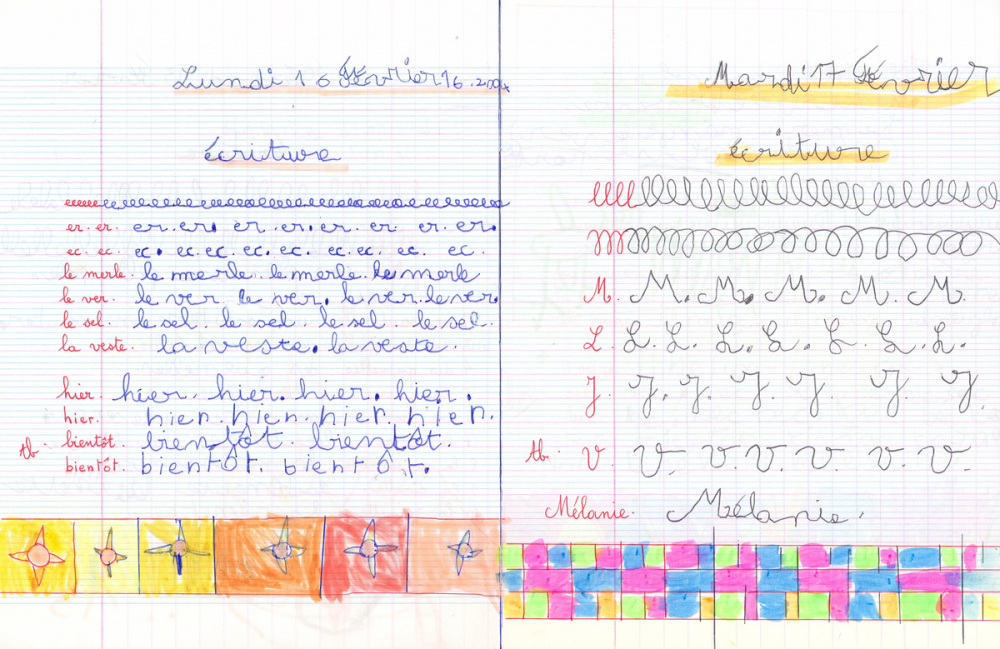 Lundi 16 février 16.2004
écriture
er. er. er. er. er. er. er. er. er.
ec. ec. ec. ec. ec. ec. ec. ec. ec. ec. ec.
le merle. le merle. le merle. le merle
le ver. le ver le ver. le ver. le ver.
le sel. le sel. le sel. le sel. le sel.
la veste. la veste. la veste.
hier. hier. hier. hier. hier.
hier. hier. hier. hier. hier.
Tb. bientôt. bientôt. bientôt.
bientôt. bientôt. bientôt.
Mardi 17 février
écriture
M. M. M. M. M. M.
L. L. L. L. L. L. L.
J. J. J. J. J. J. J.
Tb. V. V. V. V. V. V. V.
Mélanie. Mélanie.